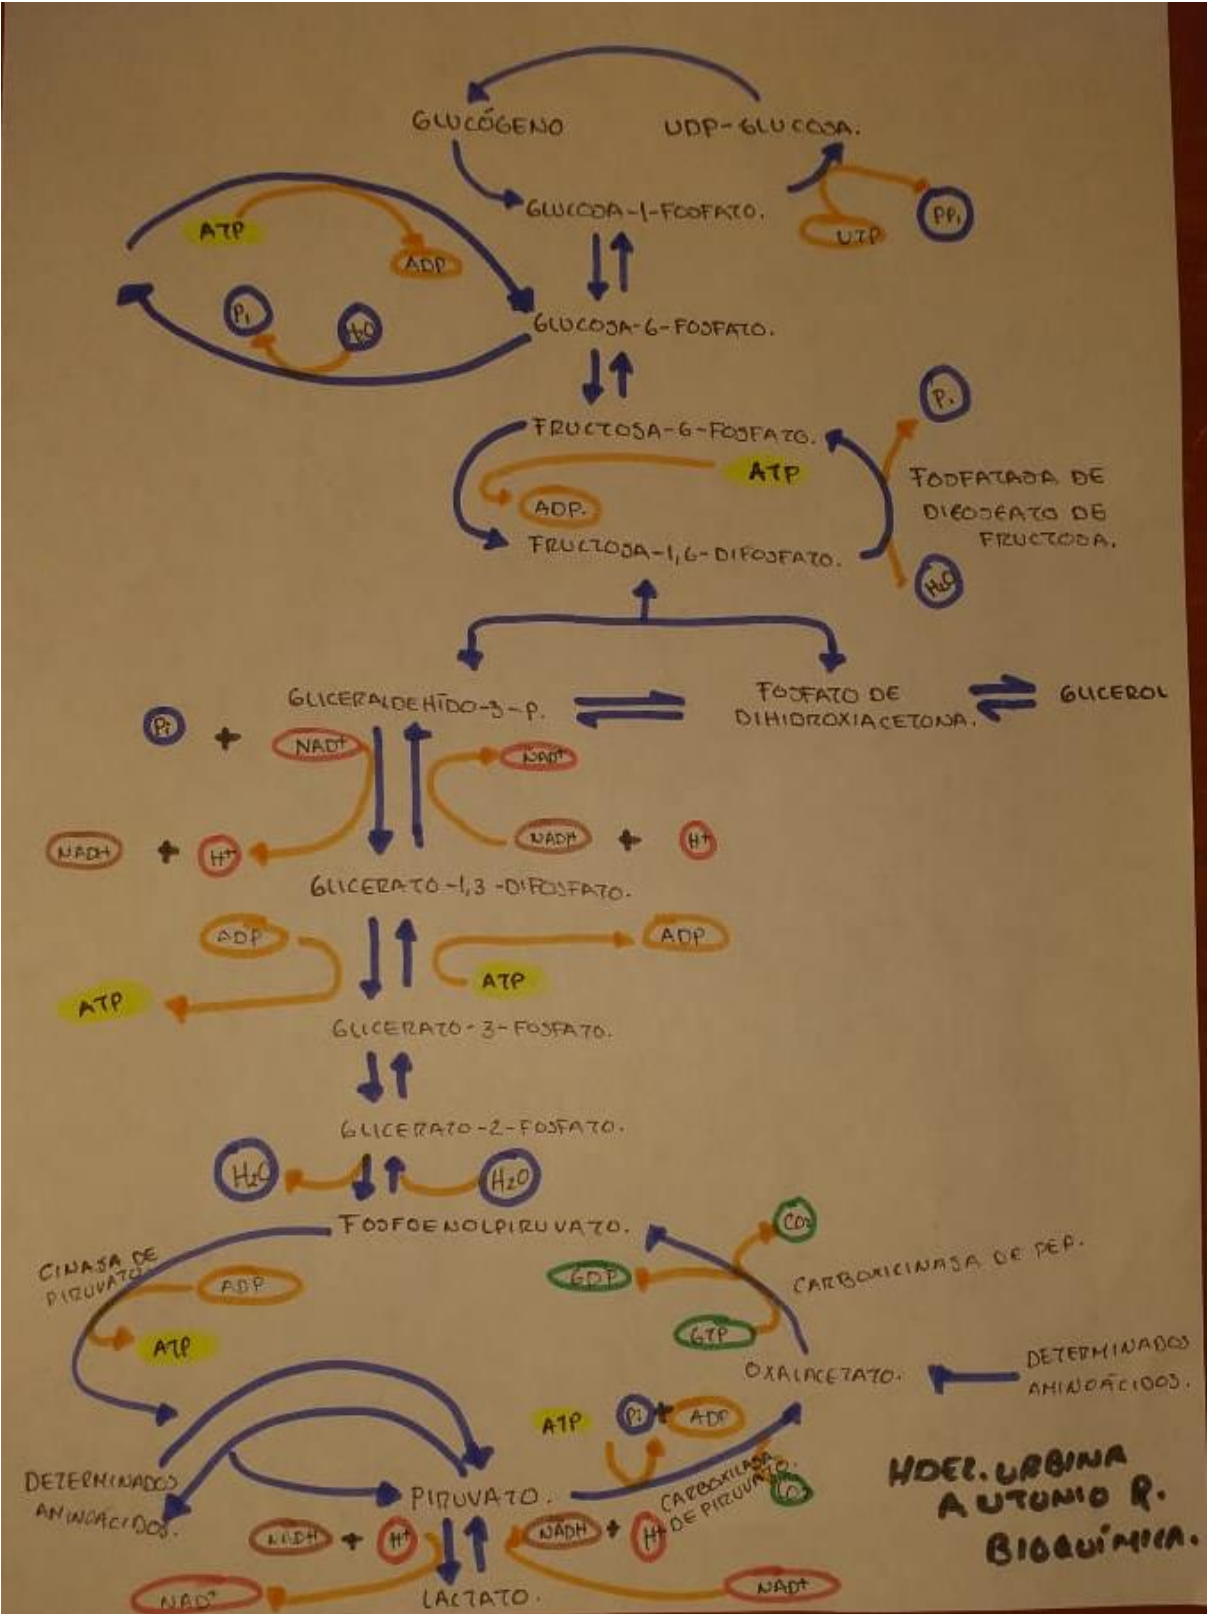 GLUCÓGENO
UDP-GLUCOSA.
GLUCOSA-1-FOSFATO.
UTP
PPi
ATP
ADP
Pi
H2O
GLUCOSA-6-FOSFATO.
FRUCTOSA-6-FOSFATO.
ATP
ADP.
Pi
FOSFATASA DE
DIFOSFATO DE
FRUCTOSA.
H2O
FRUCTOSA-1,6-DIFOSFATO.
GLICERALDEHÍDO-3-P.
FOSFATO DE
DIHIDROXIACETONA.
GLICEROL
Pi + NAD+
NAD+
NADH + H+
NADH + H+
GLICERATO-1,3-DIFOSFATO.
ADP
ADP
ATP
ATP
GLICERATO-3-FOSFATO.
GLICERATO-2-FOSFATO.
H2O
H2O
FOSFOENOLPIRUVATO.
CINASA DE
PIRUVATO.
ADP
ATP
CO2
GDP
GTP
CARBOXICINASA DE PEP.
OXALACETATO.
DETERMINADOS
AMINOÁCIDOS.
ATP
Pi + ADP
CARBOXILASA
DE PIRUVATO.
CO2
DETERMINADOS
AMINOÁCIDOS.
PIRUVATO.
NADH + H+
NADH + H+
NAD+
NAD+
LACTATO.
HDEZ. URBINA
ANTONIO R.
BIOQUÍMICA.